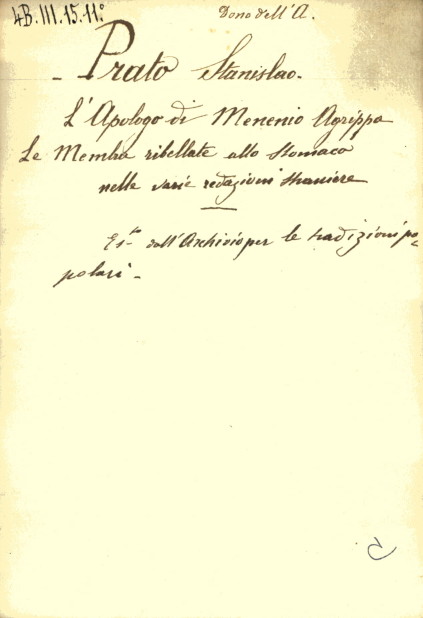 4B.III.15.11°
Dono dell'A.
- Prato Stanislao.
L'Apologo di Menenio Agrippa
Le Membra ribellate allo Stomaco
nelle varie redazioni straniere
Es.to dall'Archivio per le tradizioni po-
polari -